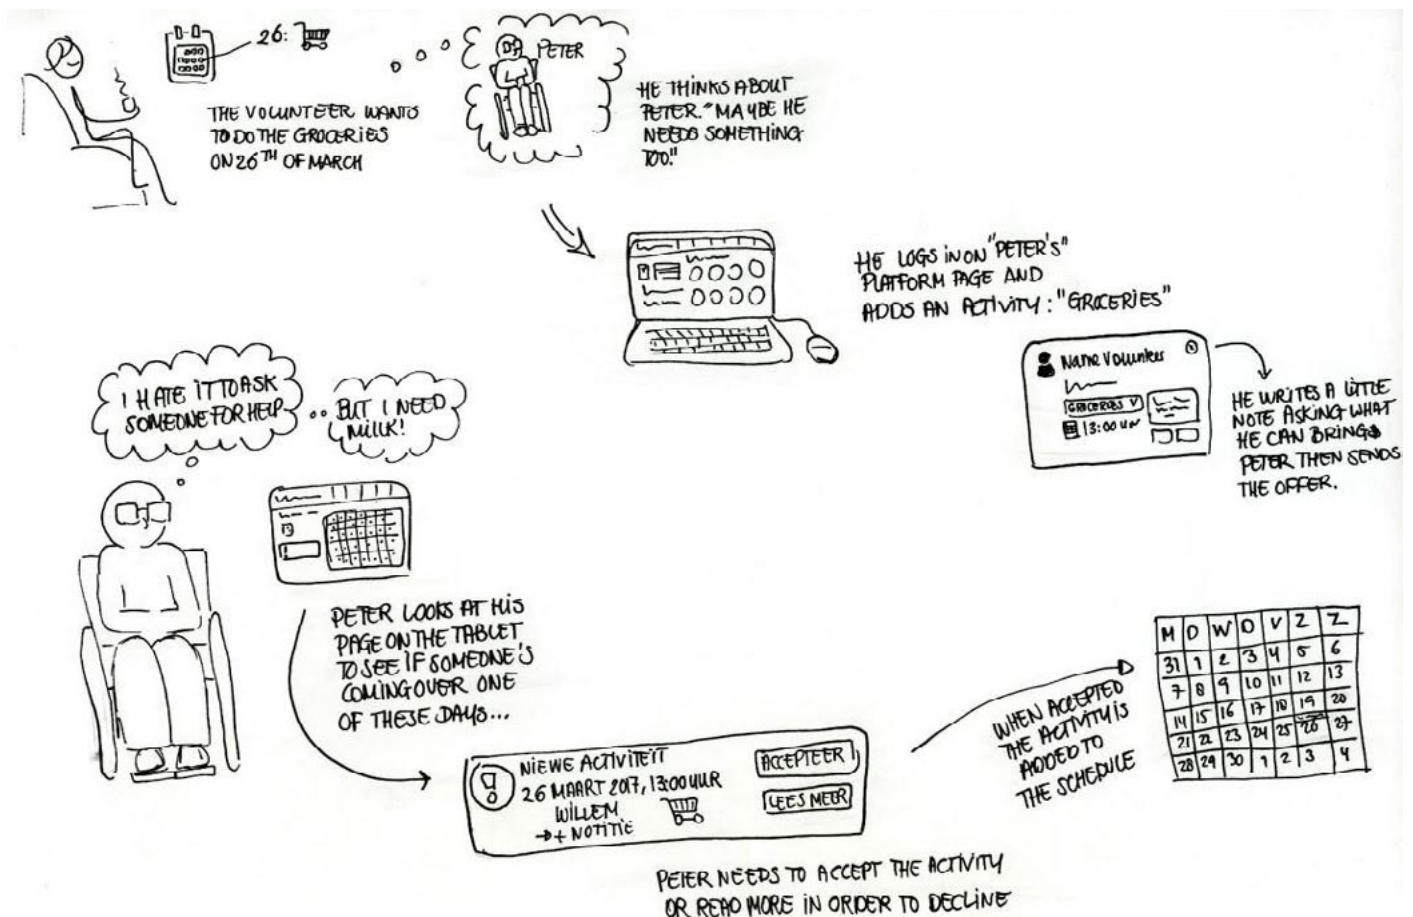 26:
THE VOLUNTEER WANTS
TO DO THE GROCERIES
ON 26TH OF MARCH
PETER
HE THINKS ABOUT
PETER. "MAYBE HE
NEEDS SOMETHING
TOO."
HE LOGS IN ON "PETER'S"
PLATFORM PAGE AND
ADDS AN ACTIVITY: "GROCERIES"
Name Volunteer
GROCERIES V
13:00 UUR
HE WRITES A LITTLE
NOTE ASKING WHAT
HE CAN BRING
PETER THEN SENDS
THE OFFER.
I HATE IT TO ASK
SOMEONE FOR HELP
BUT I NEED
MILK!
PETER LOOKS AT HIS
PAGE ON THE TABLET
TO SEE IF SOMEONE'S
COMING OVER ONE
OF THESE DAYS...
!
NIEWE ACTIVITEIT
26 MAART 2017, 13:00 UUR
WILLEM
→ + NOTITIE
ACCEPTEER
LEES MEER
PETER NEEDS TO ACCEPT THE ACTIVITY
OR READ MORE IN ORDER TO DECLINE
WHEN ACCEPTED
THE ACTIVITY IS
ADDED TO
THE SCHEDULE
M D W D V Z Z
31 1 2 3 4 5 6
7 8 9 10 11 12 13
14 15 16 17 18 19 20
21 22 23 24 25 26 27
28 29 30 1 2 3 4